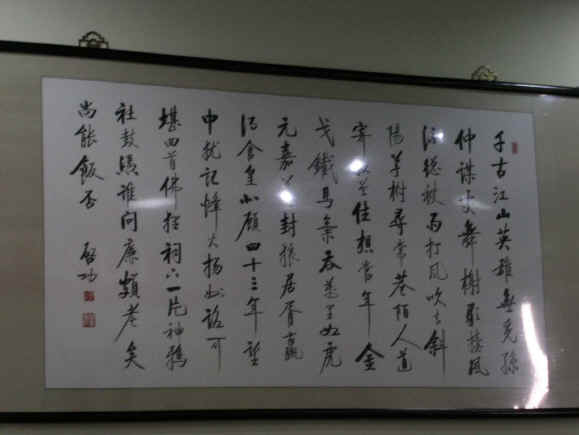 千古江山英雄無覓孫
仲謀處舞榭歌臺風
流總被雨打風吹去斜
陽草樹尋常巷陌人道
寄奴曾住想當年金
戈鐵馬氣吞萬里如虎
元嘉草草封狼居胥贏
得倉皇北顧四十三年望
中猶記烽火揚州路可
堪回首佛狸祠下一片神鴉
社鼓憑誰問廉頗老矣
尚能飯否
啟功